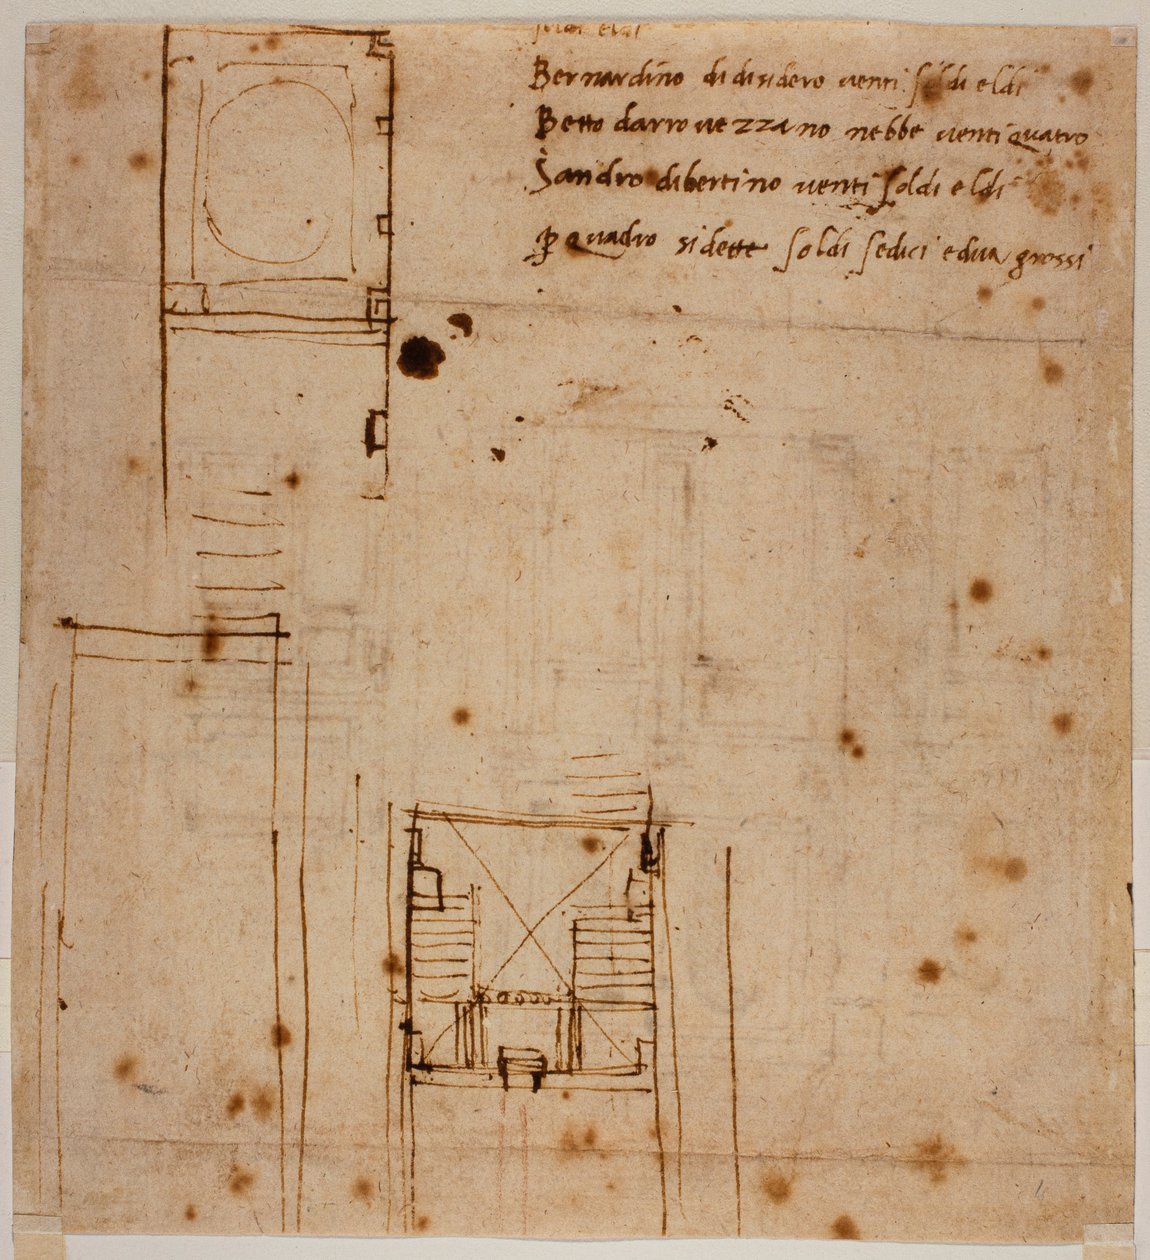 soldi eldi
Bernardino di disidero venti soldi eldi
Betto da rrovezzano nebbe venti quatro
Sandro di bertino venti soldi eldi
Quadro si dette soldi sedici e dua grossi